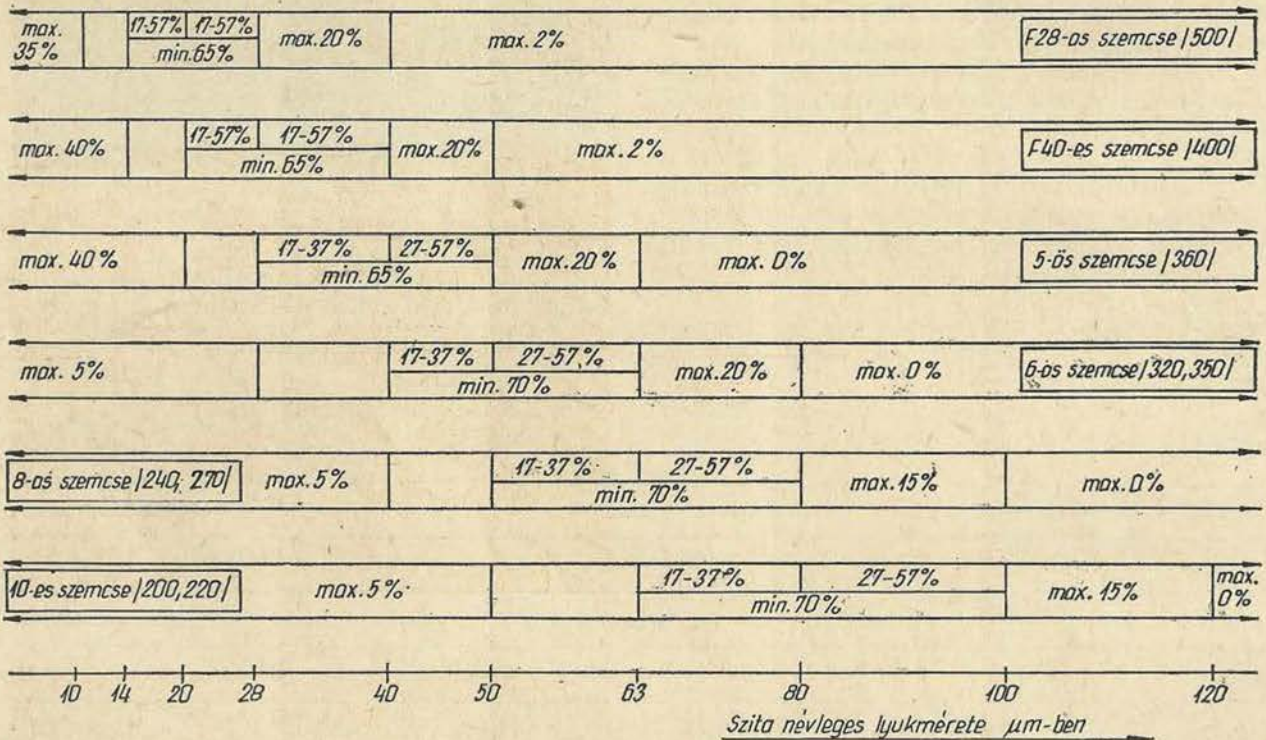 max. 35% 17-57% 17-57% min.65% max.20% max.2% F28-as szemcse /500/
max. 40% 17-57% 17-57% min.65% max.20% max.2% F40-es szemcse /400/
max. 40% 17-37% 27-57% min.65% max.20% max. 0% 5-ös szemcse /360/
max. 5% 17-37% 27-57% min. 70% max.20% max. 0% 6-os szemcse /320,350/
8-as szemcse /240, 270/ max. 5% 17-37% 27-57% min. 70% max.15% max.0%
10-es szemcse /200,220/ max.5% 17-37% 27-57% min.70% max. 15% max. 0%
10 14 20 28 40 50 63 80 100 120
Szita névleges lyukmérete µm-ben